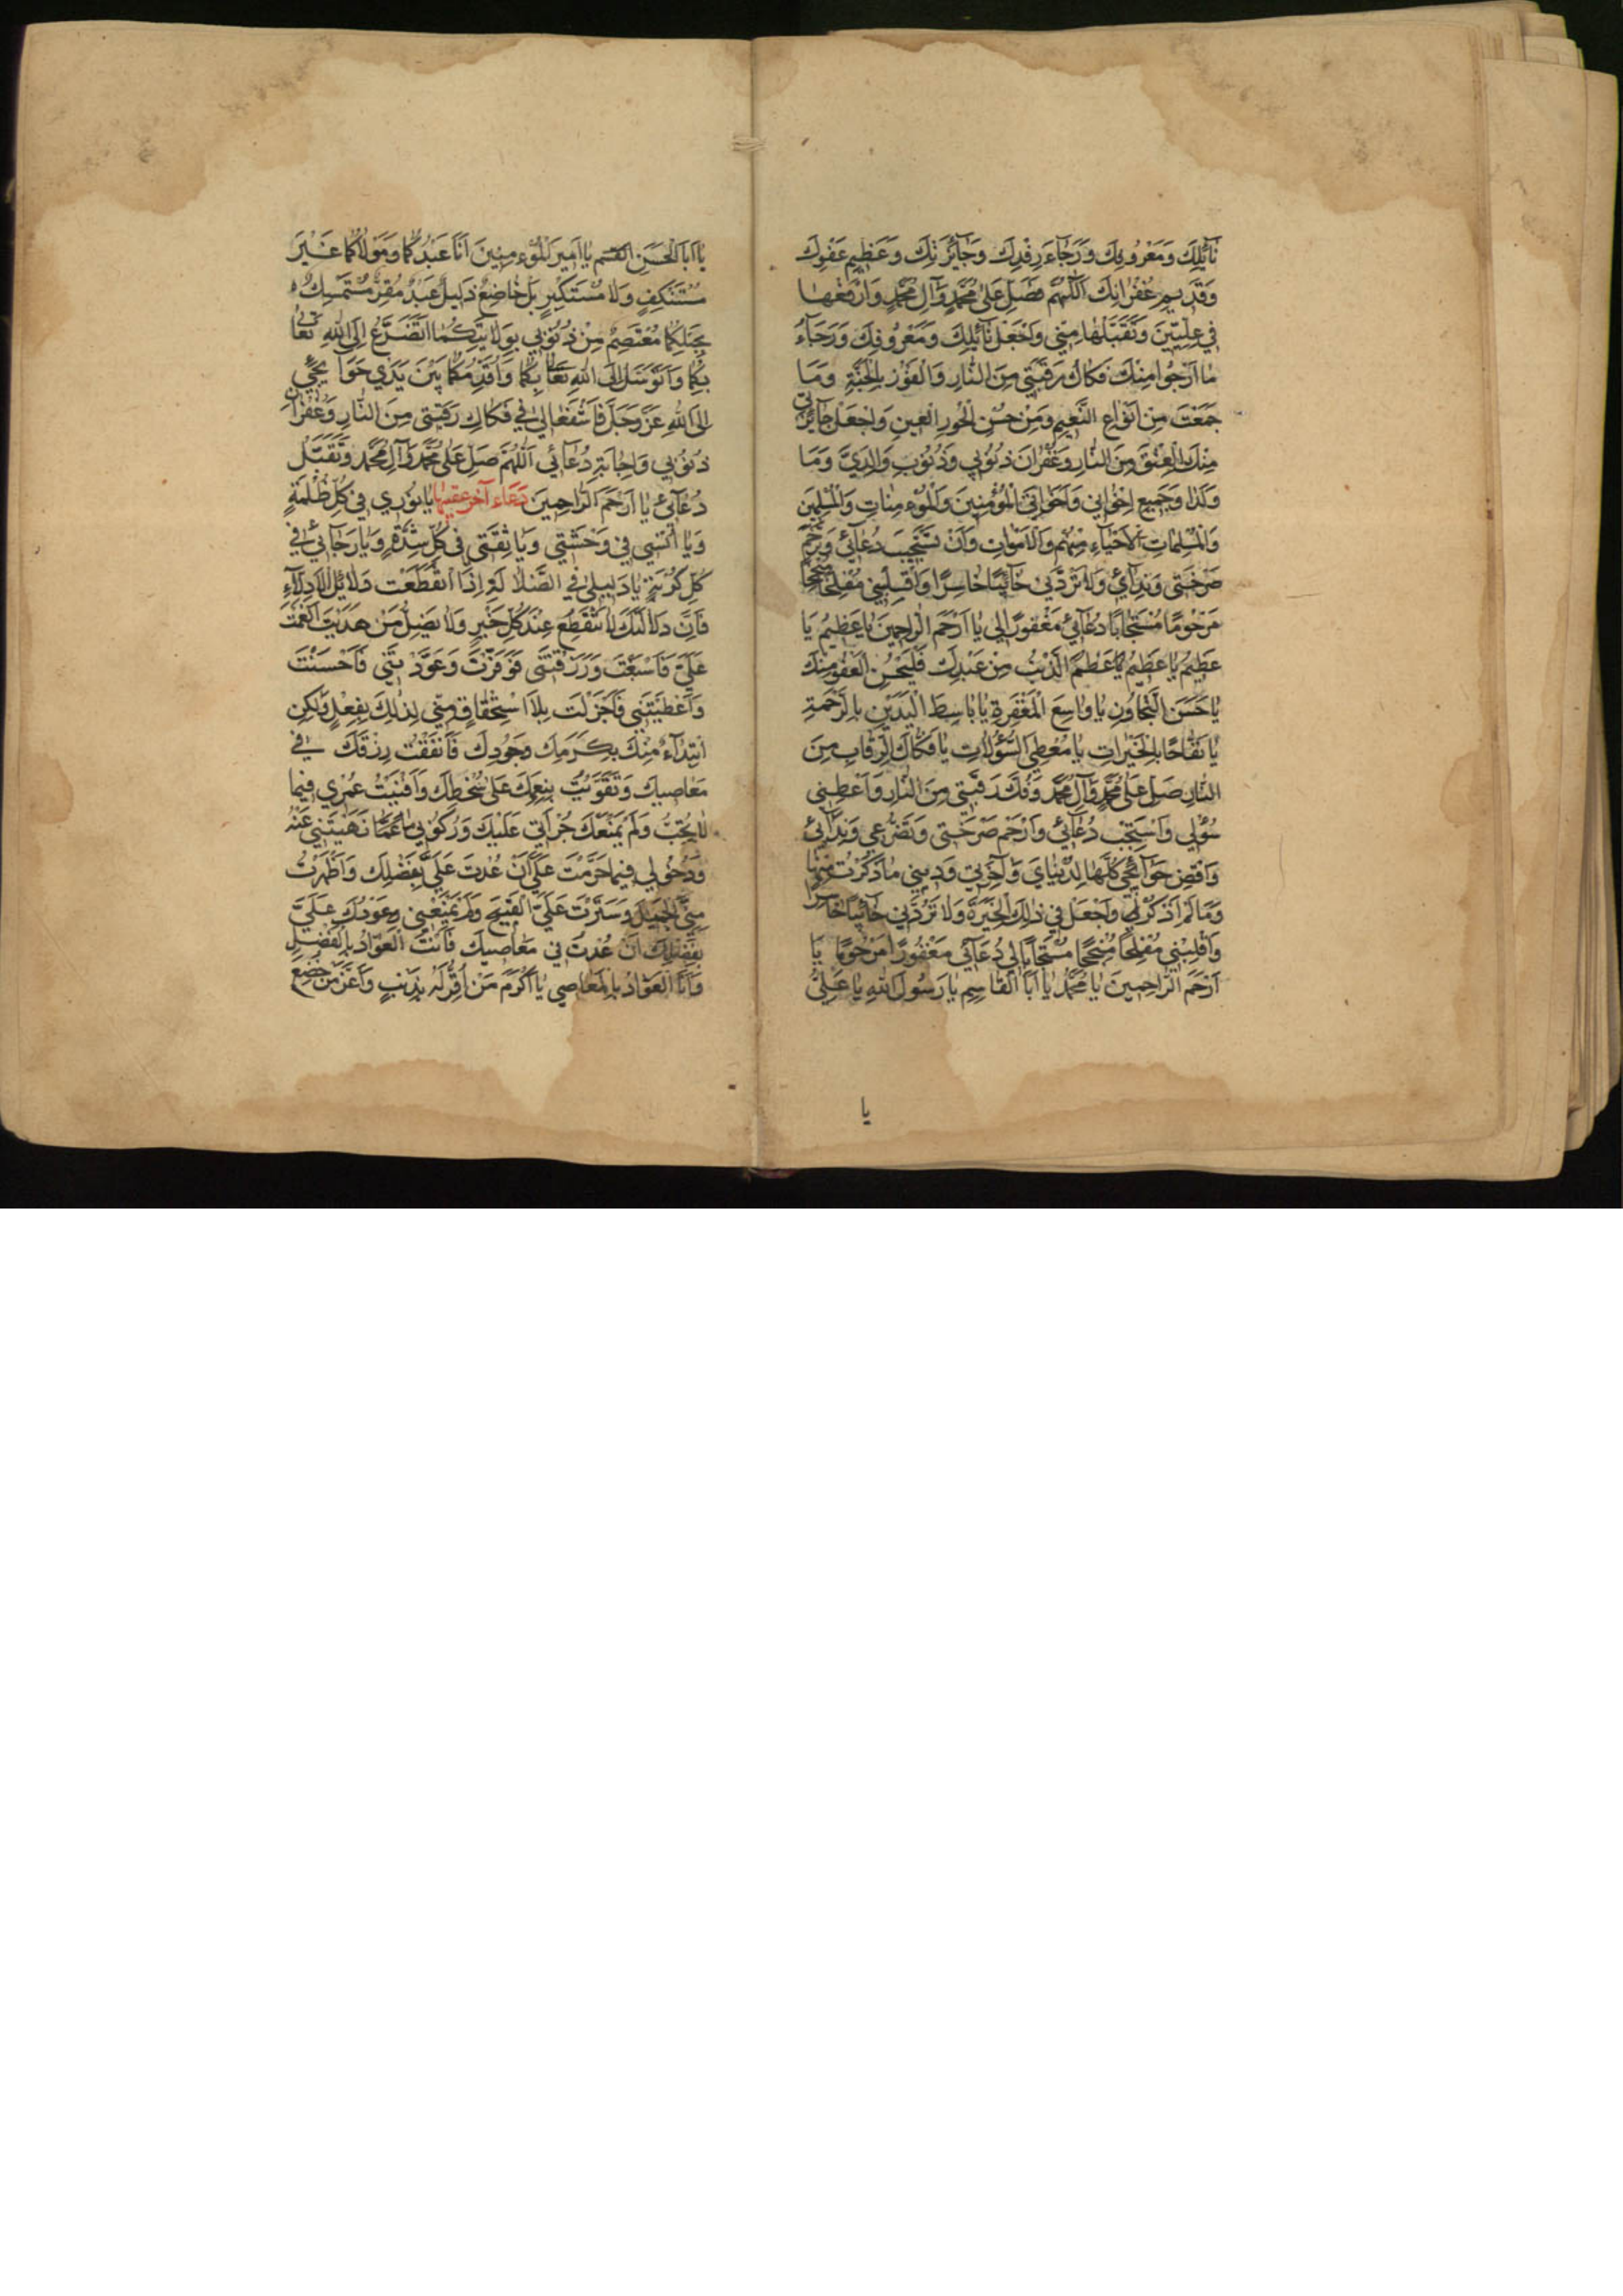 نَآئِلِكَ وَمَعْرُوفِكَ وَرَجَاءَ رِفْدِكَ وَجَآئِزَتِكَ وَعَظِيمِ عَفْوِكَ
وَقَدِيمِ غُفْرَانِكَ اَللّٰهُمَّ فَصَلِّ عَلىٰ مُحَمَّدٍ وَآلِ مُحَمَّدٍ وَارْفَعْهٰا
فِي عِلِّيِّينَ وَتَقَبَّلْهٰا مِنِّي وَاجْعَلْ نَآئِلِكَ وَمَعْرُوفِكَ وَرَجَآءُ
مٰا اَرْجُوا مِنْكَ فَكٰاكَ رَقَبَتِي مِنَ النّٰارِ وَالْفَوْزَ بِالْجَنَّةِ وَمَا
جَمَعْتَ مِنْ اَنْوٰاعِ النَّعِيمِ وَمِنْ حُسْنِ الْحُورِ الْعِينِ وَاجْعَلْ جٰآئِزَتِي
مِنْكَ الْعِتْقَ مِنَ النّٰارِ وَغُفْرٰانَ ذُنُوبِي وَذُنُوبِ وٰالِدَيَّ وَمَا
وَلَدٰا وَجَمِيعِ اِخْوٰانِي وَاَخَوٰاتِي الْمُؤْمِنِينَ وَالْمُؤْمِنٰاتِ وَالْمُسْلِمِينَ
وَالْمُسْلِمٰاتِ الْاَحْيٰآءِ مِنْهُمْ وَالْاَمْوٰاتِ وَاَنْ تَسْتَجِيبَ دُعٰآئِي وَتَرْحَمَ
صَرْخَتِي وَنِدٰآئِي وَلاٰ تَرُدَّنِي خٰآئِبًا خٰاسِرًا وَاقْلِبْنِي مُفْلِحًا مُنْجِحًا
مَرْحُومًا مُسْتَجٰابًا دُعٰآئِي مَغْفُورًا لِي يٰا اَرْحَمَ الرّٰاحِمِينَ يٰا عَظِيمُ يٰا
عَظِيمُ يٰا عَظِيمُ عَظُمَ الذَّنْبُ مِنْ عَبْدِكَ فَلْيَحْسُنِ الْعَفْوُ مِنْكَ
يٰا حَسَنَ التَّجٰاوُزِ يٰا وٰاسِعَ الْمَغْفِرَةِ يٰا بٰاسِطَ الْيَدَيْنِ بِالرَّحْمَةِ
يٰا نَفّٰاحًا بِالْخَيْرٰاتِ يٰا مُعْطِيَ السُّؤُلاٰتِ يٰا فَكّٰاكَ الرِّقٰابِ مِنَ
النّٰارِ صَلِّ عَلىٰ مُحَمَّدٍ وَآلِ مُحَمَّدٍ وَفُكَّ رَقَبَتِي مِنَ النّٰارِ وَاَعْطِنِي
سُؤْلِي وَاسْتَجِبْ دُعٰآئِي وَارْحَمْ صَرْخَتِي وَتَضَرُّعِي وَنِدٰآئِي
وَاقْضِ حَوٰآئِجِي كُلَّهٰا لِدُنْيٰايَ وَآخِرَتِي وَدِينِي مٰا ذَكَرْتُ مِنْهٰا
وَمٰا لَمْ اَذْكُرْ وَاجْعَلْ لِي فِي ذٰلِكَ الْخِيَرَةَ وَلاٰ تَرُدَّنِي خٰآئِبًا خٰاسِرًا
وَاقْلِبْنِي مُفْلِحًا مُنْجِحًا مُسْتَجٰابًا لِي دُعٰآئِي مَغْفُورًا مَرْحُومًا يٰا
اَرْحَمَ الرّٰاحِمِينَ يٰا مُحَمَّدُ يٰا اَبَا الْقٰاسِمِ يٰا رَسُولَ اللّٰهِ يٰا عَلِيُّ
يا
يٰا اَبَا الْحَسَنِ يٰا اَمِيرَ الْمُؤْمِنِينَ اَنَا عَبْدُكُمٰا وَمَوْلاٰكُمٰا غَيْرَ
مُسْتَنْكِفٍ وَلاٰ مُسْتَكْبِرٍ بَلْ خٰاضِعٌ ذَلِيلٌ عَبْدٌ مُقِرٌّ مُسْتَمْسِكٌ
بِحَبْلِكُمٰا مُعْتَصِمٌ مِنْ ذُنُوبِي بِوَلاٰيَتِكُمٰا اَتَضَرَّعُ اِلَى اللّٰهِ تَعٰالىٰ
بِكُمٰا وَاَتَوَسَّلُ اِلَى اللّٰهِ تَعٰالىٰ بِكُمٰا وَاُقَدِّمُكُمٰا بَيْنَ يَدَيْ حَوٰآئِجِي
اِلَى اللّٰهِ عَزَّ وَجَلَّ فَاشْفَعٰا لِي فِي فَكٰاكِ رَقَبَتِي مِنَ النّٰارِ وَغُفْرٰانِ
ذُنُوبِي وَاِجٰابَةِ دُعٰآئِي اَللّٰهُمَّ صَلِّ عَلىٰ مُحَمَّدٍ وَآلِ مُحَمَّدٍ وَتَقَبَّلْ
دُعٰآئِي يٰا اَرْحَمَ الرّٰاحِمِينَ دعاء آخر عقيبها يٰا نُورِي فِي كُلِّ ظُلْمَةٍ
وَيٰا اُنْسِي فِي وَحْشَتِي وَيٰا ثِقَتِي فِي كُلِّ شِدَّةٍ وَيٰا رَجٰآئِي فِي
كُلِّ كُرْبَةٍ يٰا دَلِيلِي فِي الضَّلاٰلَةِ اِذَا انْقَطَعَتْ دَلاٰئِلُ الْاَدِلّٰآءِ
فَاِنَّ دَلاٰلَتَكَ لاٰ تَنْقَطِعُ عِنْدَ كُلِّ خَيْرٍ وَلاٰ يَضِلُّ مَنْ هَدَيْتَ اَنْعَمْتَ
عَلَيَّ فَاَسْبَغْتَ وَرَزَقْتَنِي فَوَفَّرْتَ وَعَوَّدْتَنِي فَاَحْسَنْتَ
وَاَعْطَيْتَنِي فَاَجْزَلْتَ بِلاٰ اسْتِحْقٰاقٍ مِنِّي لِذٰلِكَ بِفِعْلٍ وَلٰكِنِ
ابْتِدٰآءً مِنْكَ بِكَرَمِكَ وَجُودِكَ فَاَنْفَقْتُ رِزْقَكَ فِي
مَعٰاصِيكَ وَتَقَوَّيْتُ بِنِعَمِكَ عَلىٰ سُخْطِكَ وَاَفْنَيْتُ عُمْرِي فِيمٰا
لاٰ تُحِبُّ وَلَمْ يَمْنَعْكَ جُرْاَتِي عَلَيْكَ وَرُكُوبِي عَمّٰا نَهَيْتَنِي عَنْهُ
وَدُخُولِي فِيمٰا حَرَّمْتَ عَلَيَّ اَنْ عُدْتَ عَلَيَّ بِفَضْلِكَ وَاَظْهَرْتَ
مِنِّي الْجَمِيلَ وَسَتَرْتَ عَلَيَّ الْقَبِيحَ وَلَمْ يَمْنَعْنِي عَوْدُكَ عَلَيَّ
بِفَضْلِكَ اَنْ عُدْتُ فِي مَعٰاصِيكَ فَاَنْتَ الْعَوّٰادُ بِالْفَضْلِ
وَاَنَا الْعَوّٰادُ بِالْمَعٰاصِي يٰا اَكْرَمَ مَنْ اُقِرَّ لَهُ بِذَنْبٍ وَاَعَزَّ مَنْ خُضِعَ